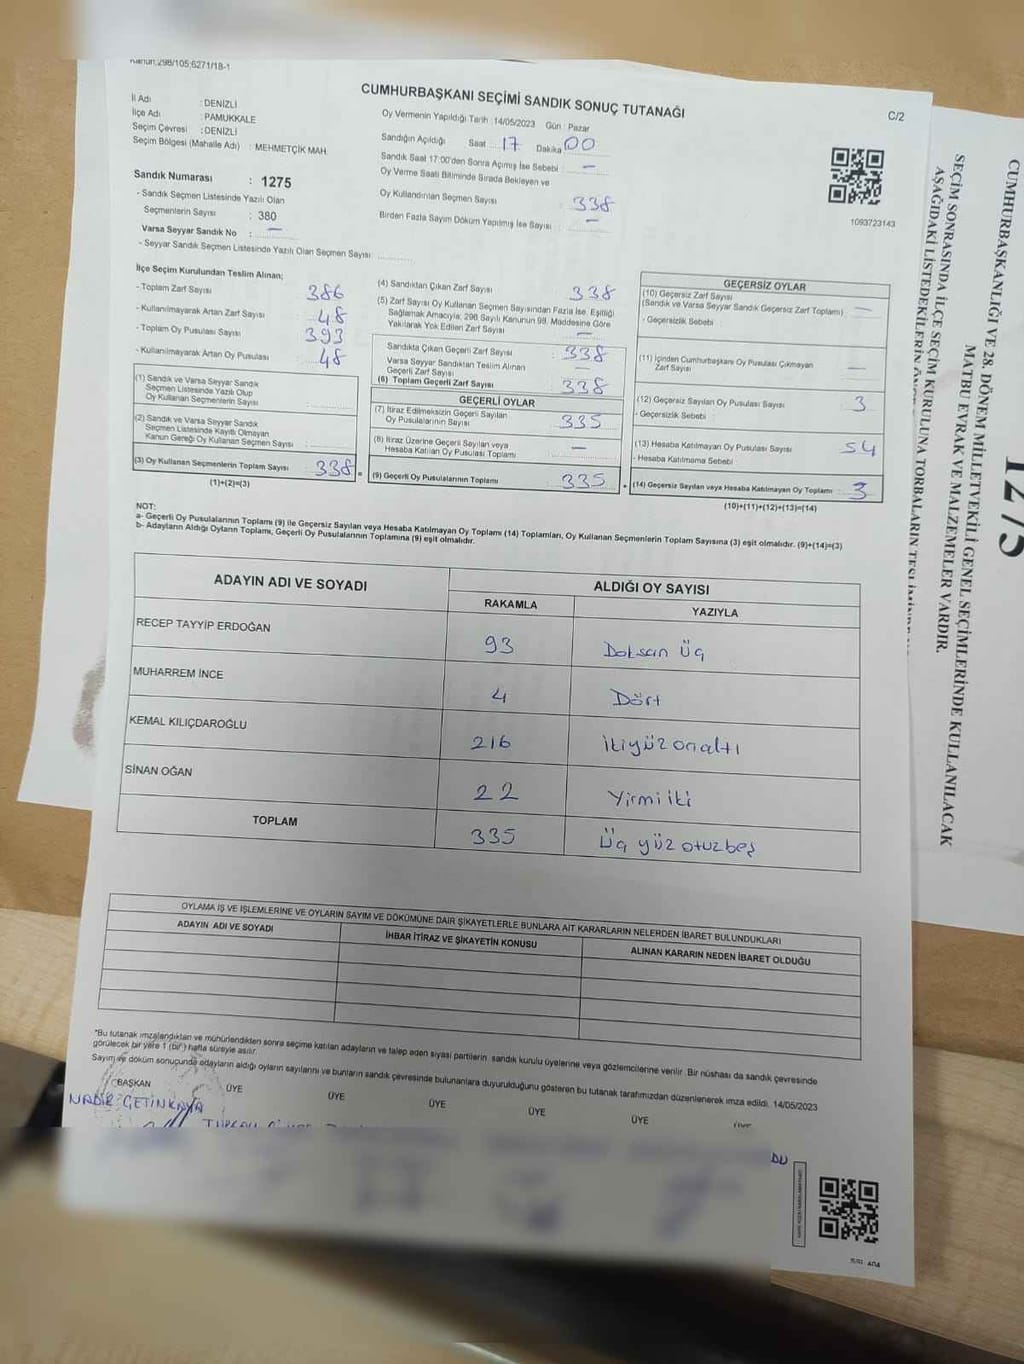 Kanun:298/105;6271/18-1
CUMHURBAŞKANI SEÇİMİ SANDIK SONUÇ TUTANAĞI
C/2
İl Adı : DENİZLİ
İlçe Adı : PAMUKKALE
Seçim Çevresi : DENİZLİ
Seçim Bölgesi (Mahalle Adı) : MEHMETÇİK MAH.
Sandık Numarası : 1275
- Sandık Seçmen Listesinde Yazılı Olan
Seçmenlerin Sayısı : 380
Varsa Seyyar Sandık No : —
- Seyyar Sandık Seçmen Listesinde Yazılı Olan Seçmen Sayısı:
Oy Vermenin Yapıldığı Tarih : 14/05/2023 Gün : Pazar
Sandığın Açıldığı Saat 17 Dakika 00
Sandık Saat 17:00'den Sonra Açımış İse Sebebi : —
Oy Verme Saati Bitiminde Sırada Bekleyen ve
Oy Kullandırılan Seçmen Sayısı : 338
Birden Fazla Sayım Döküm Yapılmış İse Sayısı : —
1093723143
İlçe Seçim Kurulundan Teslim Alınan;
- Toplam Zarf Sayısı 386
- Kullanılmayarak Artan Zarf Sayısı 48
- Toplam Oy Pusulası Sayısı 393
- Kullanılmayarak Artan Oy Pusulası 48
(1) Sandık ve Varsa Seyyar Sandık
Seçmen Listesinde Yazılı Olup
Oy Kullanan Seçmenlerin Sayısı
(2) Sandık ve Varsa Seyyar Sandık
Seçmen Listesinde Kayıtlı Olmayan
Kanun Gereği Oy Kullanan Seçmen Sayısı
(3) Oy Kullanan Seçmenlerin Toplam Sayısı 338
(1)+(2)=(3)
(4) Sandıktan Çıkan Zarf Sayısı 338
(5) Zarf Sayısı Oy Kullanan Seçmen Sayısından Fazla İse, Eşitliği
Sağlamak Amacıyla, 298 Sayılı Kanunun 98. Maddesine Göre
Yakılarak Yok Edilen Zarf Sayısı —
Sandıkta Çıkan Geçerli Zarf Sayısı : 338
Varsa Seyyar Sandıktan Teslim Alınan
Geçerli Zarf Sayısı —
(6) Toplam Geçerli Zarf Sayısı 338
GEÇERLİ OYLAR
(7) İtiraz Edilmeksizin Geçerli Sayılan
Oy Pusulalarının Sayısı 335
(8) İtiraz Üzerine Geçerli Sayılan veya
Hesaba Katılan Oy Pusulası Toplamı —
(9) Geçerli Oy Pusulalarının Toplamı 335
GEÇERSİZ OYLAR
(10) Geçersiz Zarf Sayısı
(Sandık ve Varsa Seyyar Sandık Geçersiz Zarf Toplamı) —
- Geçersizlik Sebebi :
(11) İçinden Cumhurbaşkanı Oy Pusulası Çıkmayan
Zarf Sayısı —
(12) Geçersiz Sayılan Oy Pusulası Sayısı 3
- Geçersizlik Sebebi :
(13) Hesaba Katılmayan Oy Pusulası Sayısı 54
- Hesaba Katılmama Sebebi
(14) Geçersiz Sayılan veya Hesaba Katılmayan Oy Toplamı 3
(10)+(11)+(12)+(13)=(14)
NOT:
a- Geçerli Oy Pusulalarının Toplamı (9) ile Geçersiz Sayılan veya Hesaba Katılmayan Oy Toplamı (14) Toplamları, Oy Kullanan Seçmenlerin Toplam Sayısına (3) eşit olmalıdır. (9)+(14)=(3)
b- Adayların Aldığı Oyların Toplamı, Geçerli Oy Pusulalarının Toplamına (9) eşit olmalıdır.
ADAYIN ADI VE SOYADI ALDIĞI OY SAYISI
RAKAMLA YAZIYLA
RECEP TAYYİP ERDOĞAN 93 Doksan Üç
MUHARREM İNCE 4 Dört
KEMAL KILIÇDAROĞLU 216 ikiyüz onaltı
SİNAN OĞAN 22 Yirmi iki
TOPLAM 335 Üç yüz otuzbeş
OYLAMA İŞ VE İŞLEMLERİNE VE OYLARIN SAYIM VE DÖKÜMÜNE DAİR ŞİKAYETLERLE BUNLARA AİT KARARLARIN NELERDEN İBARET BULUNDUKLARI
ADAYIN ADI VE SOYADI İHBAR İTİRAZ VE ŞİKAYETİN KONUSU ALINAN KARARIN NEDEN İBARET OLDUĞU
*Bu tutanak imzalandıktan ve mühürlendikten sonra seçime katılan adayların ve talep eden siyasi partilerin sandık kurulu üyelerine veya gözlemcilerine verilir. Bir nüshası da sandık çevresinde
görülecek bir yere 1 (bir) hafta süreyle asılır.
Sayım ve döküm sonucunda adayların aldığı oyların sayılarını ve bunların sandık çevresinde bulunanlara duyurulduğunu gösteren bu tutanak tarafımızdan düzenlenerek imza edildi. 14/05/2023
BAŞKAN ÜYE ÜYE ÜYE ÜYE ÜYE
NADİR ÇETİNKAYA
CUMHURBAŞKANLIĞI VE 28. DÖNEM MİLLETVEKİLİ GENEL SEÇİMLERİNDE KULLANILACAK
MATBU EVRAK VE MALZEMELER VARDIR.
SEÇİM SONRASINDA İLÇE SEÇİM KURULUNA TORBALARIN TESLİMİNDE
AŞAĞIDAKİ LİSTEDEKİLERİN
1275